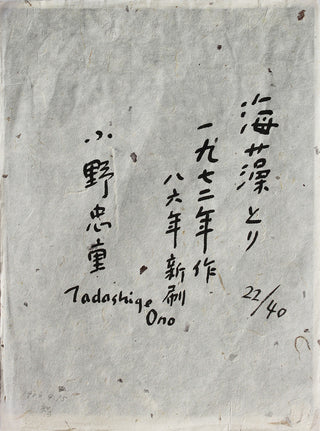 海藻とり
22/40
一九七二年作
八六年新刷
小野忠重
Tadashige
Ono